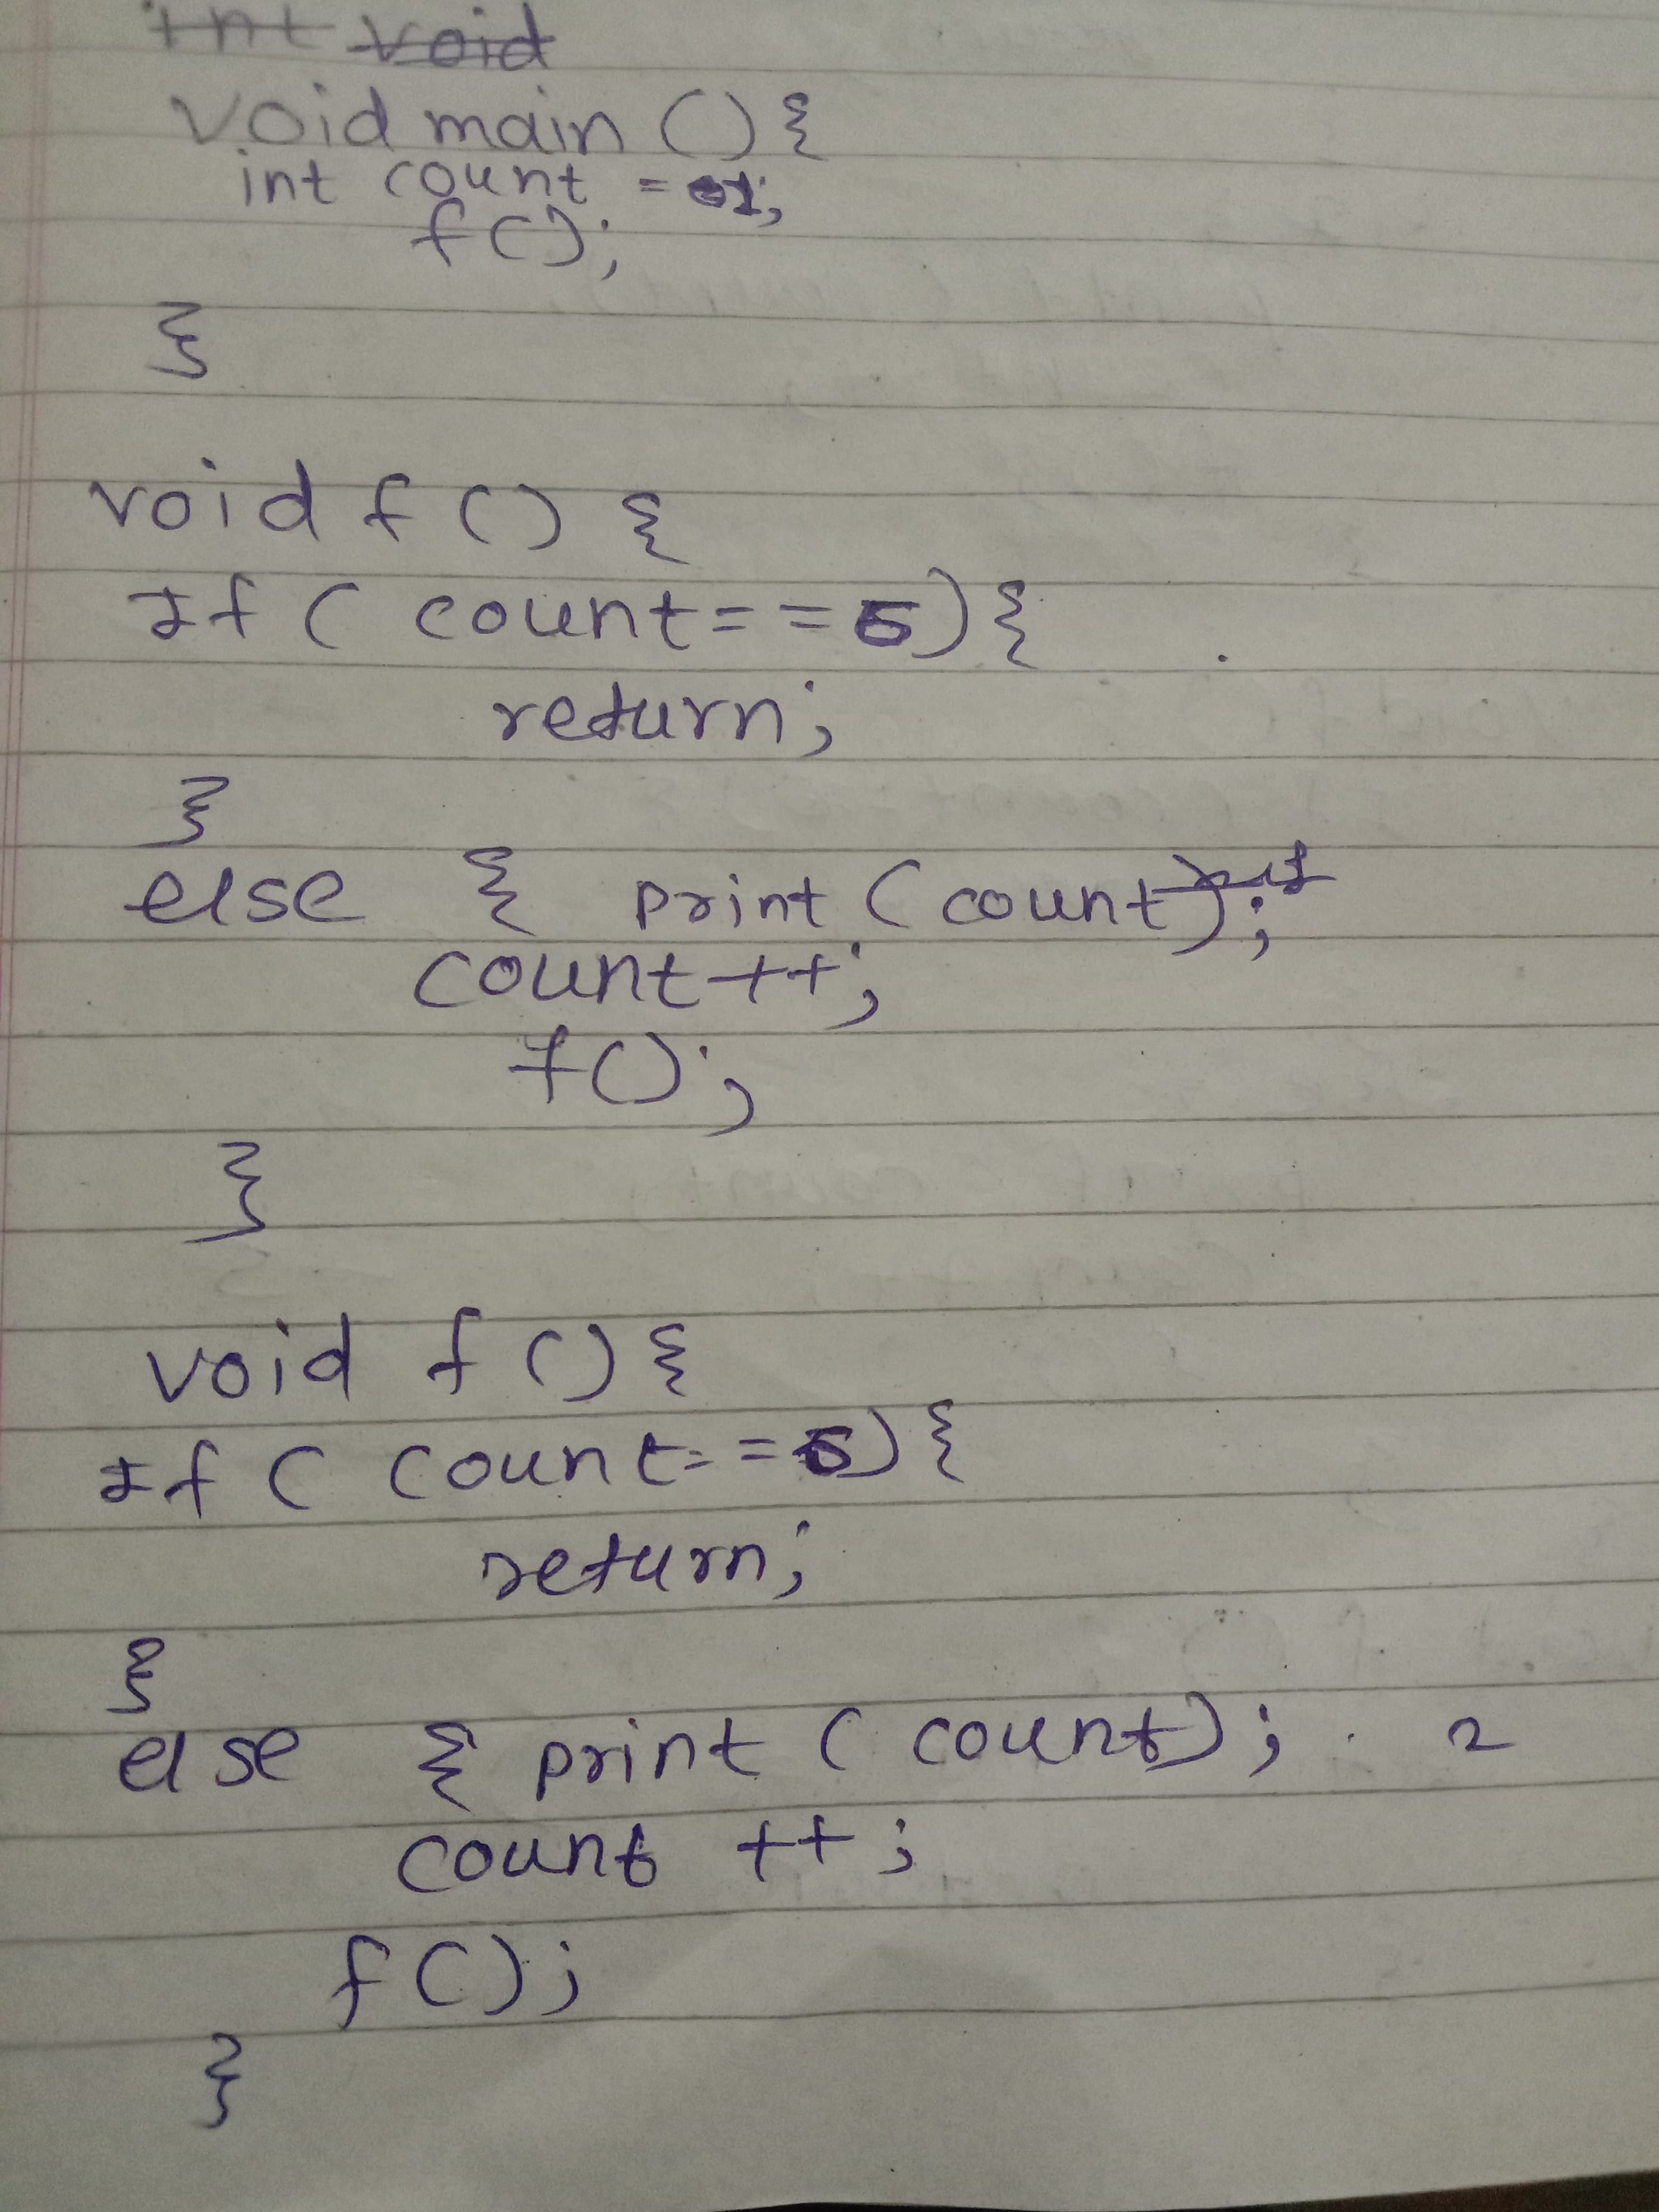 int void
void main () {
int count = 1;
f();
}
void f () {
If ( count == 5) {
return;
}
else { print (count);
count ++;
f();
}
void f () {
If ( count == 5) {
return;
}
else { print ( count); 2
count ++;
f();
}